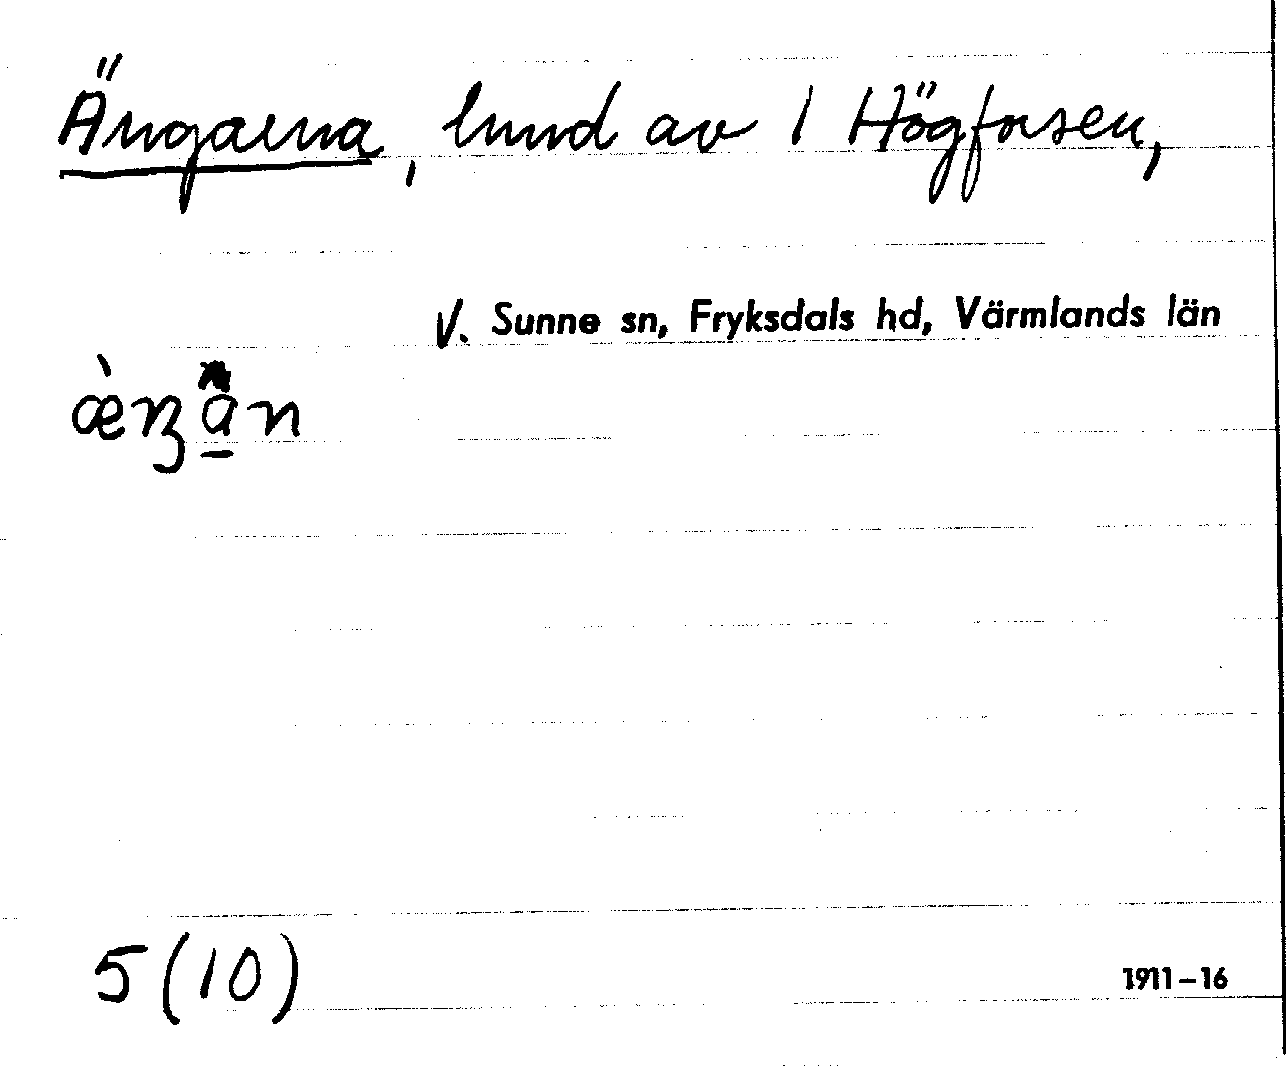 Ängarna, lund av 1 Högforsen,
V. Sunne sn, Fryksdals hd, Värmlands län
5 (10)
1911-16